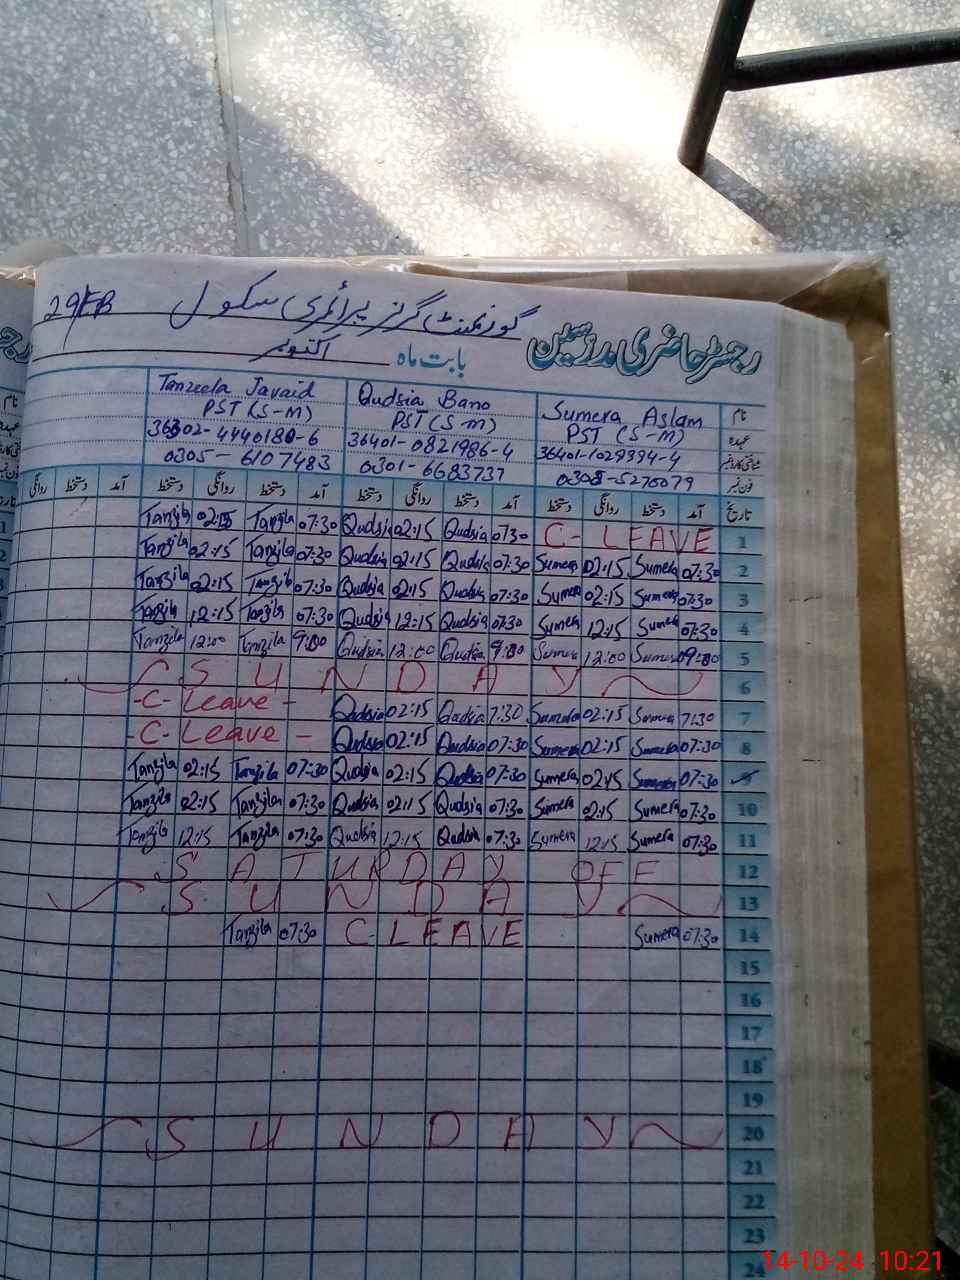 29/EB گورنمنٹ گرلز پرائمری سکول
رجسٹر حاضری مدرسین
بابت ماہ اکتوبر
Tanzeela Javaid Qudsia Bano Sumera Aslam نام
PST (S-M) PST (S-M) PST (S-M) عہدہ
36302-4440180-6 36401-0821986-4 36401-1029394-4 شناختی کارڈ نمبر
0305-6107483 0301-6683737 0305-5270079 فون نمبر
روانگی دستخط دستخط آمد دستخط روانگی دستخط آمد دستخط روانگی دستخط آمد دستخط روانگی دستخط آمد تاریخ
Tanzila 02:15 Tanzila 07:30 Qudsia 02:15 Qudsia 07:30 C- LEAVE 1
Tanzila 02:15 Tanzila 07:30 Qudsia 02:15 Qudsia 07:30 Sumera 02:15 Sumera 07:30 2
Tanzila 02:15 Tanzila 07:30 Qudsia 02:15 Qudsia 07:30 Sumera 02:15 Sumera 07:30 3
Tanzila 12:15 Tanzila 07:30 Qudsia 12:15 Qudsia 07:30 Sumera 12:15 Sumera 07:30 4
Tanzila 12:00 Tanzila 9:00 Qudsia 12:00 Qudsia 9:00 Sumera 12:00 Sumera 09:00 5
SUNDAY 6
-C- Leave - Qudsia 02:15 Qudsia 7:30 Sumera 02:15 Sumera 7:30 7
-C- Leave - Qudsia 02:15 Qudsia 07:30 Sumera 02:15 Sumera 07:30 8
Tanzila 02:15 Tanzila 07:30 Qudsia 02:15 Qudsia 07:30 Sumera 02:15 Sumera 07:30 9
Tanzila 02:15 Tanzila 07:30 Qudsia 02:15 Qudsia 07:30 Sumera 02:15 Sumera 07:30 10
Tanzila 12:15 Tanzila 07:30 Qudsia 12:15 Qudsia 07:30 Sumera 12:15 Sumera 07:30 11
SATURDAY OFF 12
SUNDAY 13
Tanzila 07:30 C-LEAVE Sumera 07:30 14
15
16
17
18
19
SUNDAY 20
21
22
23
24
14-10-24 10:21